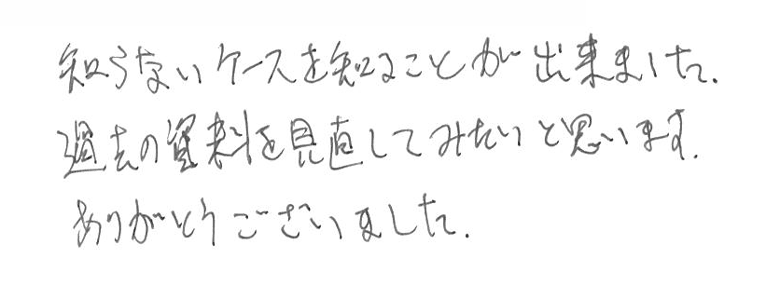 知らないケースを知ることが出来ました.
過去の資料を見直してみたいと思います.
ありがとうございました.